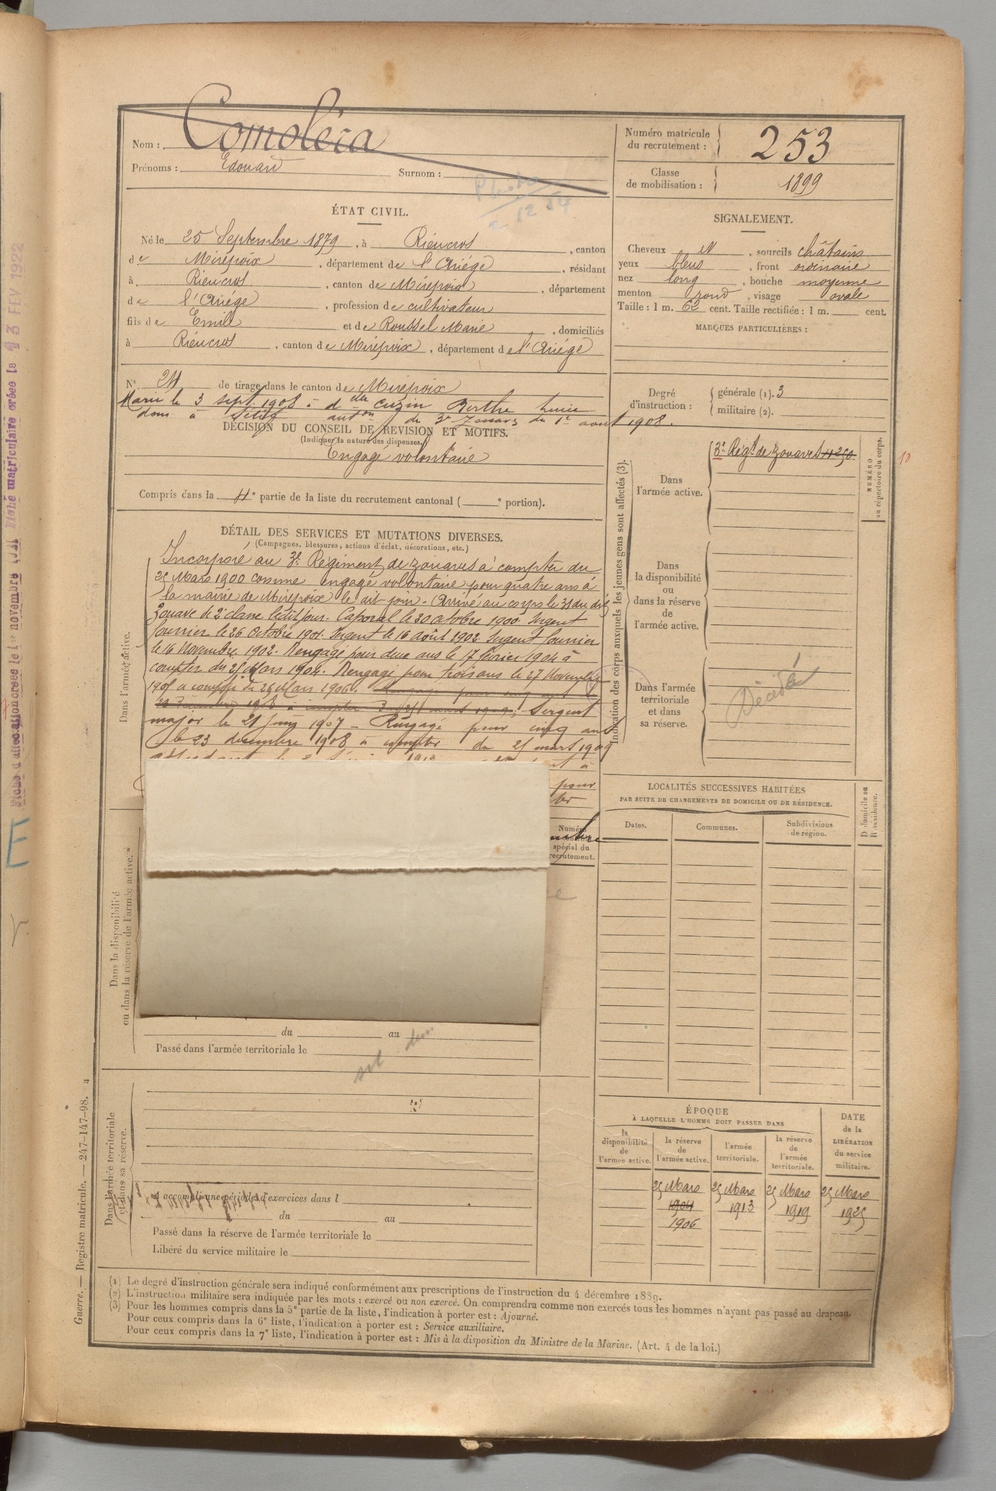 Nom : Comoléra
Prénoms : Edouard Surnom :
Numéro matricule du recrutement : 253
Classe de mobilisation : 1899
ÉTAT CIVIL.
Né le 25 Septembre 1879, à Rieucros, canton
de Mirepoix, département de l'Ariège, résidant
à Rieucros, canton de Mirepoix, département
de l'Ariège, profession de cultivateur
fils de Emile et de Roussel Marie, domiciliés
à Rieucros, canton de Mirepoix, département de l'Ariège
SIGNALEMENT.
Cheveux et, sourcils châtains
yeux bleus, front ordinaire
nez long, bouche moyenne
menton rond, visage ovale
Taille : 1 m. 62 cent. Taille rectifiée : 1 m. cent.
MARQUES PARTICULIÈRES :
N° de tirage dans le canton de Mirepoix
Marié le 3 sept. 1908 à dlle Cuzin Berthe
dom à Sétif auton du 3e Zouaves du 1er août 1908.
DÉCISION DU CONSEIL DE RÉVISION ET MOTIFS.
(Indiquer la nature des dispenses.)
Engagé volontaire
Compris dans la 4e partie de la liste du recrutement cantonal ( e portion).
Degré d'instruction :
générale (1). 3
militaire (2).
DÉTAIL DES SERVICES ET MUTATIONS DIVERSES.
(Campagnes, blessures, actions d'éclat, décorations, etc.)
Incorporé au 3e Régiment de zouaves à compter du
25 Mars 1900 comme engagé volontaire pour quatre ans à
la mairie de Mirepoix le dit jour. Arrivé au corps le 31 du dit
Zouave de 2e classe le dit jour. Caporal le 20 octobre 1900. Sergent
fourrier le 26 octobre 1901. Sergent le 16 août 1902. Sergent fourrier
le 16 Novembre 1902. Rengagé pour deux ans le 17 février 1904 à
compter du 25 Mars 1904. Rengagé pour trois ans le 27 Novembre
1905 à compter du 25 Mars 1906. Sergent
major le 21 Juin 1907 - Rengagé pour cinq ans
le 23 décembre 1908 à compter du 25 mars 1909
pour
Numéro spécial du recrutement.
Dans l'armée active.
Dans la disponibilité ou dans la réserve de l'armée active.
du au
Passé dans l'armée territoriale le
Dans l'armée territoriale et dans sa réserve.
A accompli une période d'exercices dans l
du au
Passé dans la réserve de l'armée territoriale le
Libéré du service militaire le
Indication des corps auxquels les jeunes gens sont affectés (3).
Dans l'armée active.
3e Régt de Zouaves
NUMÉRO au répertoire du corps.
10
Dans la disponibilité ou dans la réserve de l'armée active.
Dans l'armée territoriale et dans sa réserve.
Décédé
LOCALITÉS SUCCESSIVES HABITÉES
PAR SUITE DE CHANGEMENTS DE DOMICILE OU DE RÉSIDENCE.
Dates. Communes. Subdivisions de région. D. domicile ou R. résidence.
ÉPOQUE
À LAQUELLE L'HOMME DOIT PASSER DANS
la disponibilité de l'armée active. la réserve de l'armée active. l'armée territoriale. la réserve de l'armée territoriale.
DATE de la LIBÉRATION du service militaire.
25 Mars 25 Mars 25 Mars 25 Mars
1904 1913 1919 1925
1906
(1) Le degré d'instruction générale sera indiqué conformément aux prescriptions de l'instruction du 4 décembre 1889.
(2) L'instruction militaire sera indiquée par les mots : exercé ou non exercé. On comprendra comme non exercés tous les hommes n'ayant pas passé au drapeau.
(3) Pour les hommes compris dans la 5e partie de la liste, l'indication à porter est : Ajourné.
Pour ceux compris dans la 6e liste, l'indication à porter est : Service auxiliaire.
Pour ceux compris dans la 7e liste, l'indication à porter est : Mis à la disposition du Ministre de la Marine. (Art. 4 de la loi.)
Guerre. — Registre matricule. — 247-147-98.